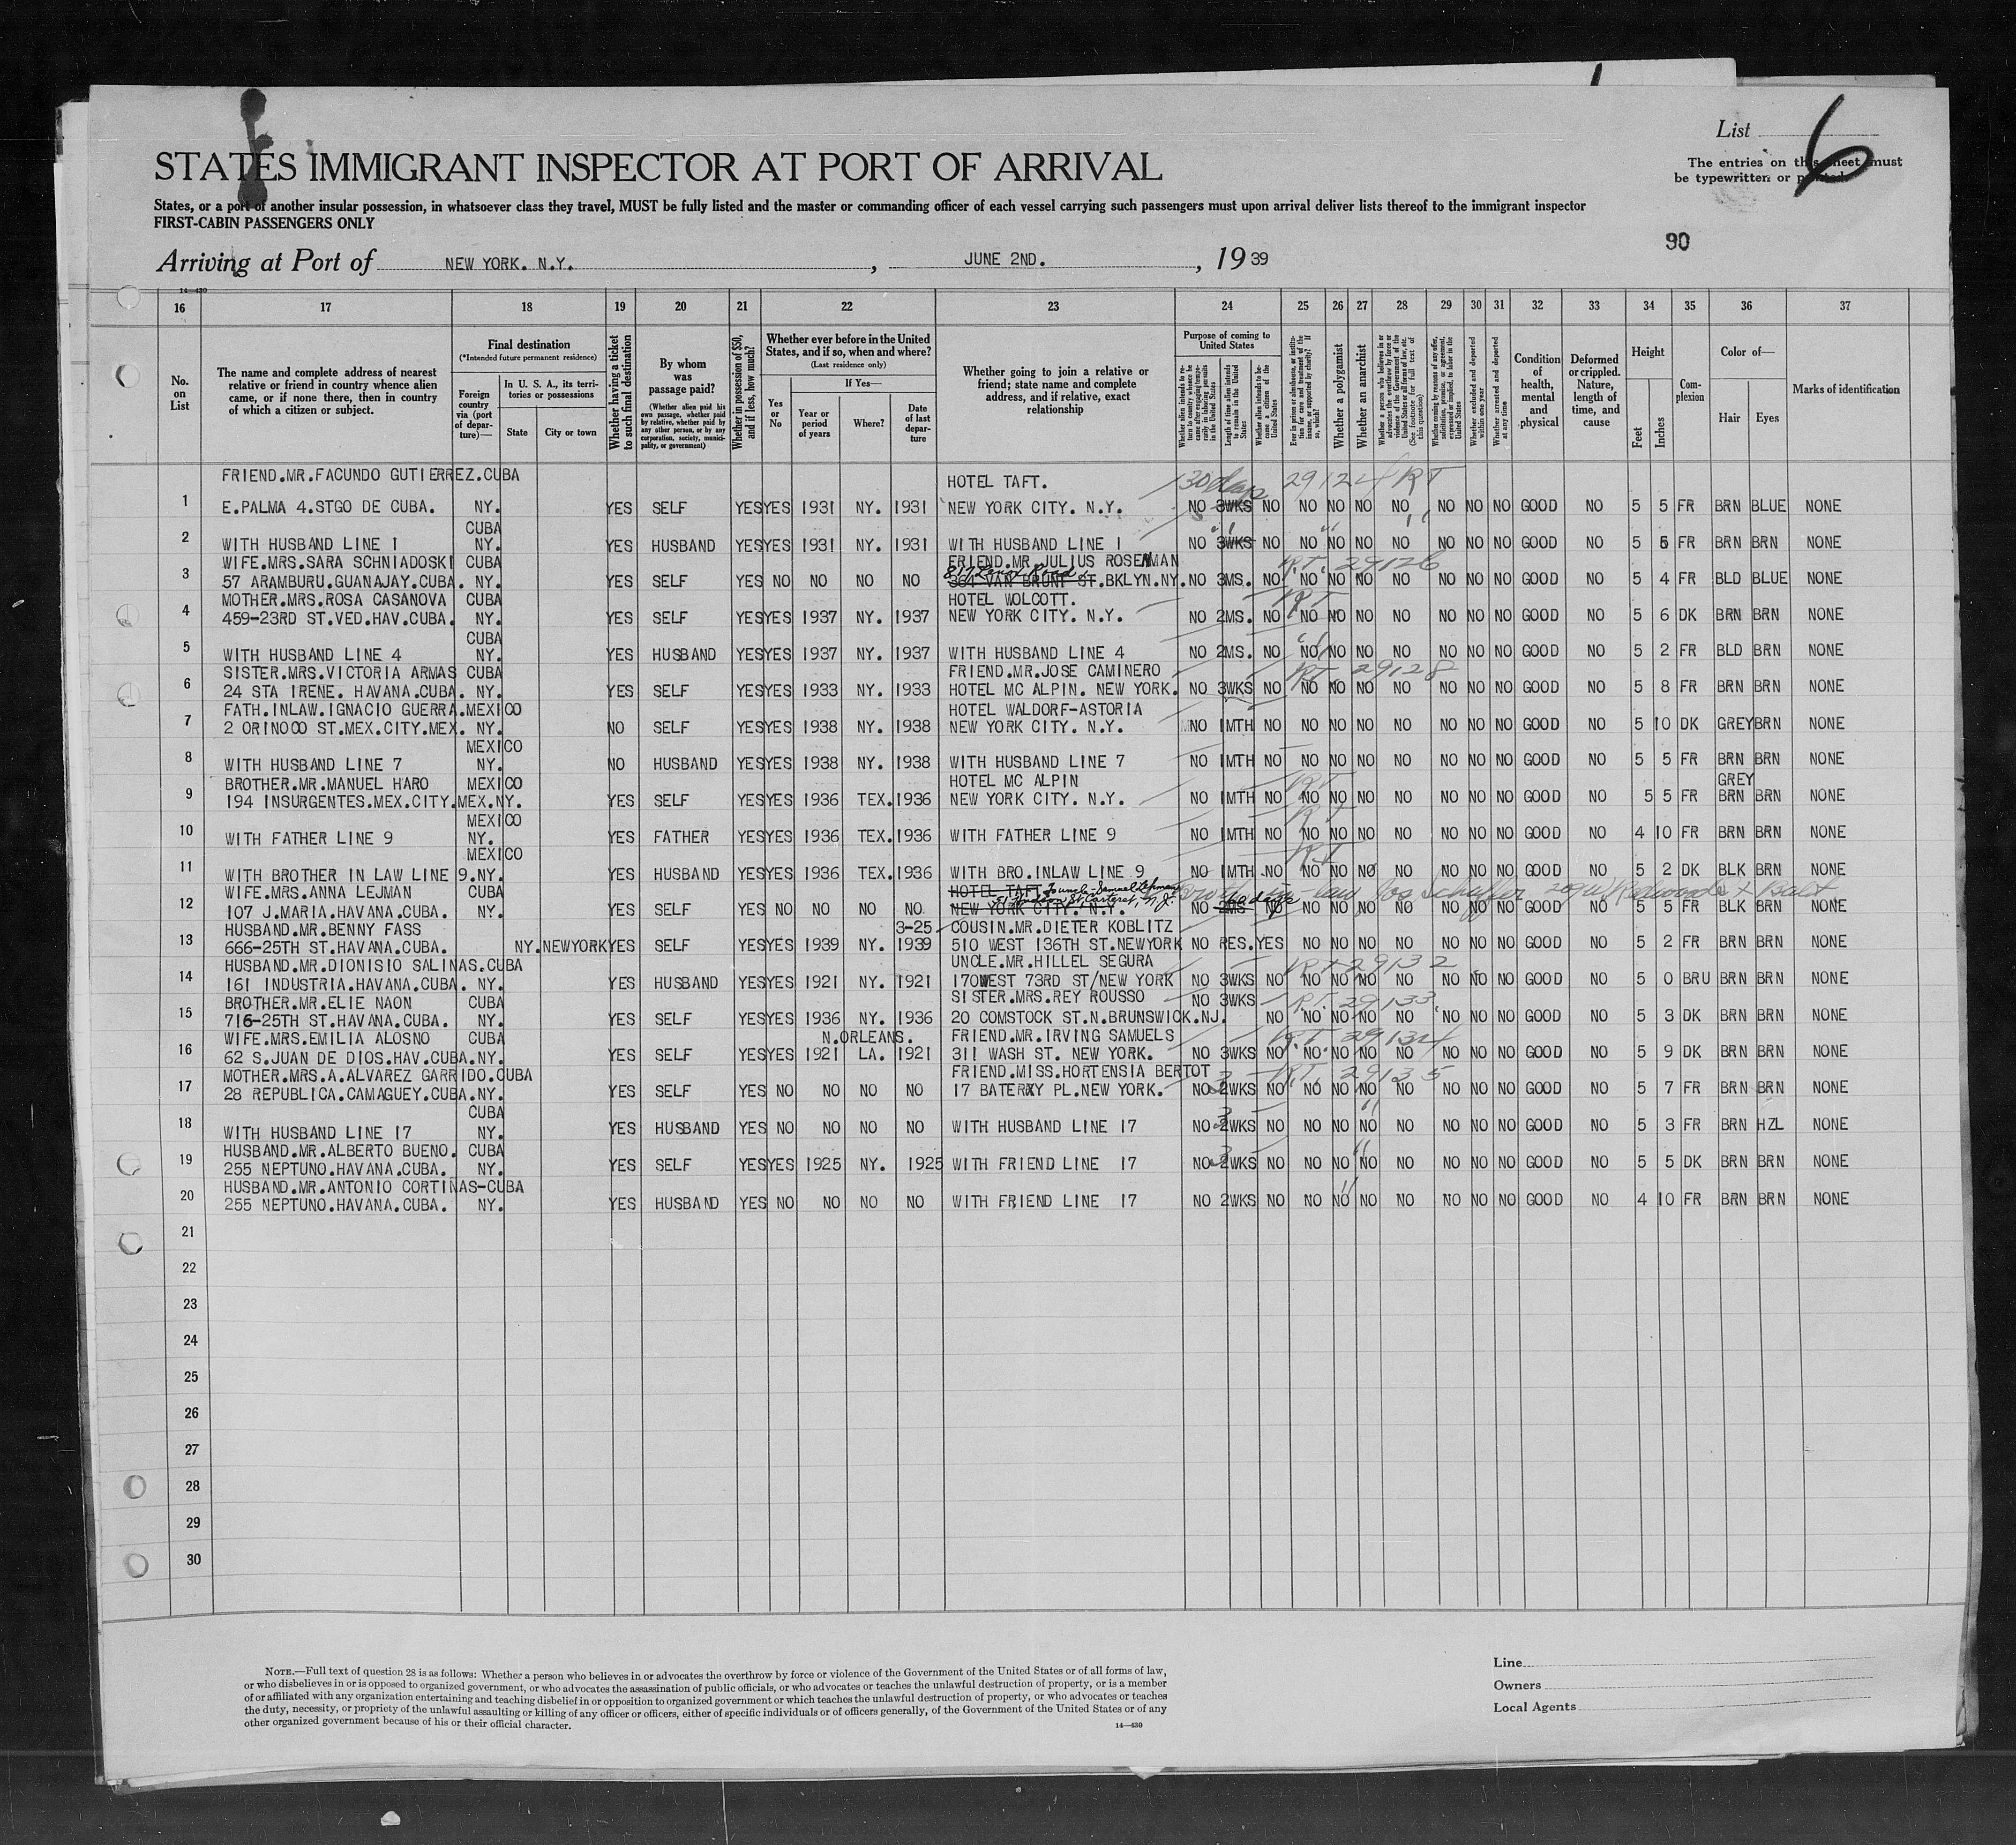 List 6
STATES IMMIGRANT INSPECTOR AT PORT OF ARRIVAL
The entries on this sheet must
be typewritten or printed.
States, or a port of another insular possession, in whatsoever class they travel, MUST be fully listed and the master or commanding officer of each vessel carrying such passengers must upon arrival deliver lists thereof to the immigrant inspector
FIRST-CABIN PASSENGERS ONLY
90
Arriving at Port of NEW YORK. N.Y. , JUNE 2ND. , 19 39
14—430
16 17 18 19 20 21 22 23 24 25 26 27 28 29 30 31 32 33 34 35 36 37
No. on List
The name and complete address of nearest relative or friend in country whence alien came, or if none there, then in country of which a citizen or subject.
Final destination
(*Intended future permanent residence)
Foreign country via (port of departure)—
In U. S. A., its territories or possessions
State City or town
Whether having a ticket to such final destination
By whom was passage paid?
(Whether alien paid his own passage, whether paid by relative, whether paid by any other person, or by any corporation, society, municipality, or government)
Whether in possession of $50, and if less, how much?
Whether ever before in the United States, and if so, when and where?
(Last residence only)
Yes or No
If Yes—
Year or period of years Where? Date of last departure
Whether going to join a relative or friend; state name and complete address, and if relative, exact relationship
Purpose of coming to United States
Whether alien intends to return to country whence he came after engaging temporarily in laboring pursuits in the United States
Length of time alien intends to remain in the United States
Whether alien intends to become a citizen of the United States
Ever in prison or almshouse, or institution for care and treatment of the insane, or supported by charity? If so, which?
Whether a polygamist
Whether an anarchist
Whether a person who believes in or advocates the overthrow by force or violence of the Government of the United States or all forms of law, etc. (See footnote for full text of this question)
Whether coming by reasons of any offer, solicitation, promise, or agreement, expressed or implied, to labor in the United States
Whether excluded and deported within one year
Whether arrested and deported at any time
Condition of health, mental and physical
Deformed or crippled. Nature, length of time, and cause
Height
Feet Inches
Complexion
Color of—
Hair Eyes
Marks of identification
FRIEND.MR.FACUNDO GUTIERREZ.CUBA HOTEL TAFT. 30 days 29124 RT
1 E.PALMA 4.STGO DE CUBA. NY. YES SELF YES YES 1931 NY. 1931 NEW YORK CITY. N.Y. NO 3WKS NO NO NO NO NO NO NO NO GOOD NO 5 5 FR BRN BLUE NONE
CUBA
2 WITH HUSBAND LINE 1 NY. YES HUSBAND YES YES 1931 NY. 1931 WITH HUSBAND LINE 1 NO 3WKS NO NO NO NO NO NO NO NO GOOD NO 5 5 FR BRN BRN NONE
WIFE.MRS.SARA SCHNIADOSKI CUBA FRIEND.MR.JULIUS ROSENMAN R.T. 29126
817 Lenox Road
3 57 ARAMBURU.GUANAJAY.CUBA. NY. YES SELF YES NO NO NO NO 364 VAN BRUNT ST.BKLYN.NY. NO 3MS. NO NO NO NO NO NO NO NO GOOD NO 5 4 FR BLD BLUE NONE
MOTHER.MRS.ROSA CASANOVA CUBA HOTEL WOLCOTT. RT
4 459-23RD ST.VED.HAV.CUBA. NY. YES SELF YES YES 1937 NY. 1937 NEW YORK CITY. N.Y. NO 2MS. NO NO NO NO NO NO NO NO GOOD NO 5 6 DK BRN BRN NONE
CUBA
5 WITH HUSBAND LINE 4 NY. YES HUSBAND YES YES 1937 NY. 1937 WITH HUSBAND LINE 4 NO 2MS. NO NO NO NO NO NO NO NO GOOD NO 5 2 FR BLD BRN NONE
SISTER.MRS.VICTORIA ARMAS CUBA FRIEND.MR.JOSE CAMINERO RT 29128
6 24 STA IRENE. HAVANA.CUBA. NY. YES SELF YES YES 1933 NY. 1933 HOTEL MC ALPIN. NEW YORK. NO 3WKS NO NO NO NO NO NO NO NO GOOD NO 5 8 FR BRN BRN NONE
FATH.INLAW.IGNACIO GUERRA.MEXICO HOTEL WALDORF-ASTORIA
7 2 ORINOCO ST.MEX.CITY.MEX. NY. NO SELF YES YES 1938 NY. 1938 NEW YORK CITY. N.Y. NO 1MTH NO NO NO NO NO NO NO NO GOOD NO 5 10 DK GREY BRN NONE
MEXICO
8 WITH HUSBAND LINE 7 NY. NO HUSBAND YES YES 1938 NY. 1938 WITH HUSBAND LINE 7 NO 1MTH NO NO NO NO NO NO NO NO GOOD NO 5 5 FR BRN BRN NONE
BROTHER.MR.MANUEL HARO MEXICO HOTEL MC ALPIN RT GREY
9 194 INSURGENTES.MEX.CITY.MEX.NY. YES SELF YES YES 1936 TEX. 1936 NEW YORK CITY. N.Y. NO 1MTH NO NO NO NO NO NO NO NO GOOD NO 5 5 FR BRN BRN NONE
MEXICO RT
10 WITH FATHER LINE 9 NY. YES FATHER YES YES 1936 TEX. 1936 WITH FATHER LINE 9 NO 1MTH NO NO NO NO NO NO NO NO GOOD NO 4 10 FR BRN BRN NONE
MEXICO RT
11 WITH BROTHER IN LAW LINE 9.NY. YES HUSBAND YES YES 1936 TEX. 1936 WITH BRO.INLAW LINE 9 NO 1MTH NO NO NO NO NO NO NO NO GOOD NO 5 2 DK BLK BRN NONE
WIFE.MRS.ANNA LEJMAN CUBA HOTEL TAFT. To uncle-Samuel Lehman Brother-in-law Jos Schaffer
St. Carteret, N.J. 60 days
12 107 J.MARIA.HAVANA.CUBA. NY. YES SELF YES NO NO NO NO NEW YORK CITY. N.Y. NO 2MS NO NO NO NO NO NO NO NO GOOD NO 5 5 FR BLK BRN NONE
HUSBAND.MR.BENNY FASS 3-25 COUSIN.MR.DIETER KOBLITZ
13 666-25TH ST.HAVANA.CUBA. NY. NEWYORK YES SELF YES YES 1939 NY. 1939 510 WEST 136TH ST.NEWYORK NO RES. YES NO NO NO NO NO NO NO GOOD NO 5 2 FR BRN BRN NONE
HUSBAND.MR.DIONISIO SALINAS.CUBA UNCLE.MR.HILLEL SEGURA RT 29132
14 161 INDUSTRIA.HAVANA.CUBA. NY. YES HUSBAND YES YES 1921 NY. 1921 170WEST 73RD ST/NEW YORK NO 3WKS NO NO NO NO NO NO NO NO GOOD NO 5 0 BRU BRN BRN NONE
BROTHER.MR.ELIE NAON CUBA SISTER.MRS.REY ROUSSO NO 3WKS R.T. 29133
15 716-25TH ST.HAVANA.CUBA. NY. YES SELF YES YES 1936 NY. 1936 20 COMSTOCK ST.N.BRUNSWICK.NJ. NO NO NO NO NO NO NO NO GOOD NO 5 3 DK BRN BRN NONE
WIFE.MRS.EMILIA ALOSNO CUBA N.ORLEANS. FRIEND.MR.IRVING SAMUELS RT 29134
16 62 S.JUAN DE DIOS.HAV.CUBA.NY. YES SELF YES YES 1921 LA. 1921 311 WASH ST. NEW YORK. NO 3WKS NO NO NO NO NO NO NO NO GOOD NO 5 9 DK BRN BRN NONE
MOTHER.MRS.A.ALVAREZ GARRIDO.CUBA FRIEND.MISS.HORTENSIA BERTOT R.T. 29135
17 28 REPUBLICA.CAMAGUEY.CUBA.NY. YES SELF YES NO NO NO NO 17 BATERXY PL.NEW YORK. NO 3 2WKS NO NO NO NO NO NO NO NO GOOD NO 5 7 FR BRN BRN NONE
CUBA
18 WITH HUSBAND LINE 17 NY. YES HUSBAND YES NO NO NO NO WITH HUSBAND LINE 17 NO 3 2WKS NO NO NO NO NO NO NO NO GOOD NO 5 3 FR BRN HZL NONE
HUSBAND.MR.ALBERTO BUENO. CUBA
19 255 NEPTUNO.HAVANA.CUBA. NY. YES SELF YES YES 1925 NY. 1925 WITH FRIEND LINE 17 NO 3 2WKS NO NO NO NO NO NO NO NO GOOD NO 5 5 DK BRN BRN NONE
HUSBAND.MR.ANTONIO CORTINAS-CUBA
20 255 NEPTUNO.HAVANA.CUBA. NY. YES HUSBAND YES NO NO NO NO WITH FRIEND LINE 17 NO 2WKS NO NO NO NO NO NO NO NO GOOD NO 4 10 FR BRN BRN NONE
21
22
23
24
25
26
27
28
29
30
NOTE.—Full text of question 28 is as follows: Whether a person who believes in or advocates the overthrow by force or violence of the Government of the United States or of all forms of law,
or who disbelieves in or is opposed to organized government, or who advocates the assassination of public officials, or who advocates or teaches the unlawful destruction of property, or is a member
of or affiliated with any organization entertaining and teaching disbelief in or opposition to organized government or which teaches the unlawful destruction of property, or who advocates or teaches
the duty, necessity, or propriety of the unlawful assaulting or killing of any officer or officers, either of specific individuals or of officers generally, of the Government of the United States or of any
other organized government because of his or their official character.
14—430
Line
Owners
Local Agents